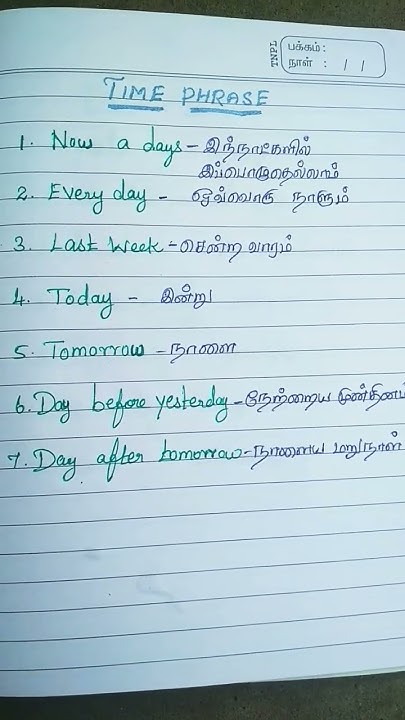 TNPL
பக்கம் :
நாள் : / /
TIME PHRASE
1. Now a days - இந்நாட்களில்
இப்பொழுதெல்லாம்
2. Every day - ஒவ்வொரு நாளும்
3. Last week - சென்ற வாரம்
4. Today - இன்று
5. Tomorrow - நாளை
6. Day before yesterday - நேற்றைய முன்தினம்
7. Day after tomorrow - நாளைய மறுநாள்